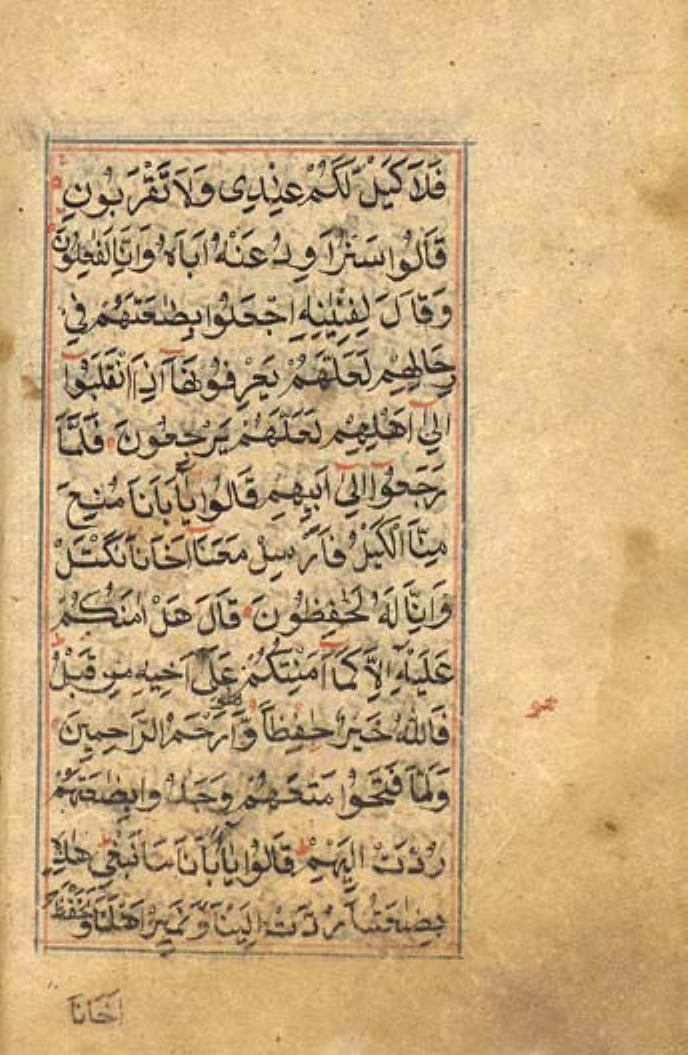 فَلَا كَيْلَ لَكُمْ عِنْدِى وَلَا تَقْرَبُونِ
قَالُوا سَنُرَاوِدُ عَنْهُ اَبَاهُ وَاِنَّا لَفٰعِلُونَ
وَقَالَ لِفِتْيٰنِهِ اجْعَلُوا بِضٰعَتَهُمْ فِى
رِحَالِهِمْ لَعَلَّهُمْ يَعْرِفُونَهَا اِذَا انْقَلَبُوا
اِلىٰ اَهْلِهِمْ لَعَلَّهُمْ يَرْجِعُونَ فَلَمَّا
رَجَعُوا اِلىٰ اَبِيهِمْ قَالُوا يَا اَبَانَا مُنِعَ
مِنَّا الْكَيْلُ فَاَرْسِلْ مَعَنَا اَخَانَا نَكْتَلْ
وَاِنَّا لَهُ لَحٰفِظُونَ قَالَ هَلْ اٰمَنُكُمْ
عَلَيْهِ اِلَّا كَمَا اَمِنْتُكُمْ عَلىٰ اَخِيهِ مِنْ قَبْلُ
فَاللّٰهُ خَيْرٌ حٰفِظاً وَهُوَ اَرْحَمُ الرَّاحِمِينَ
وَلَمَّا فَتَحُوا مَتٰعَهُمْ وَجَدُوا بِضٰعَتَهُمْ
رُدَّتْ اِلَيْهِمْ قَالُوا يَا اَبَانَا مَا نَبْغِى هٰذِهِ
بِضٰعَتُنَا رُدَّتْ اِلَيْنَا وَنَمِيرُ اَهْلَنَا وَنَحْفَظُ
اَخَانَا